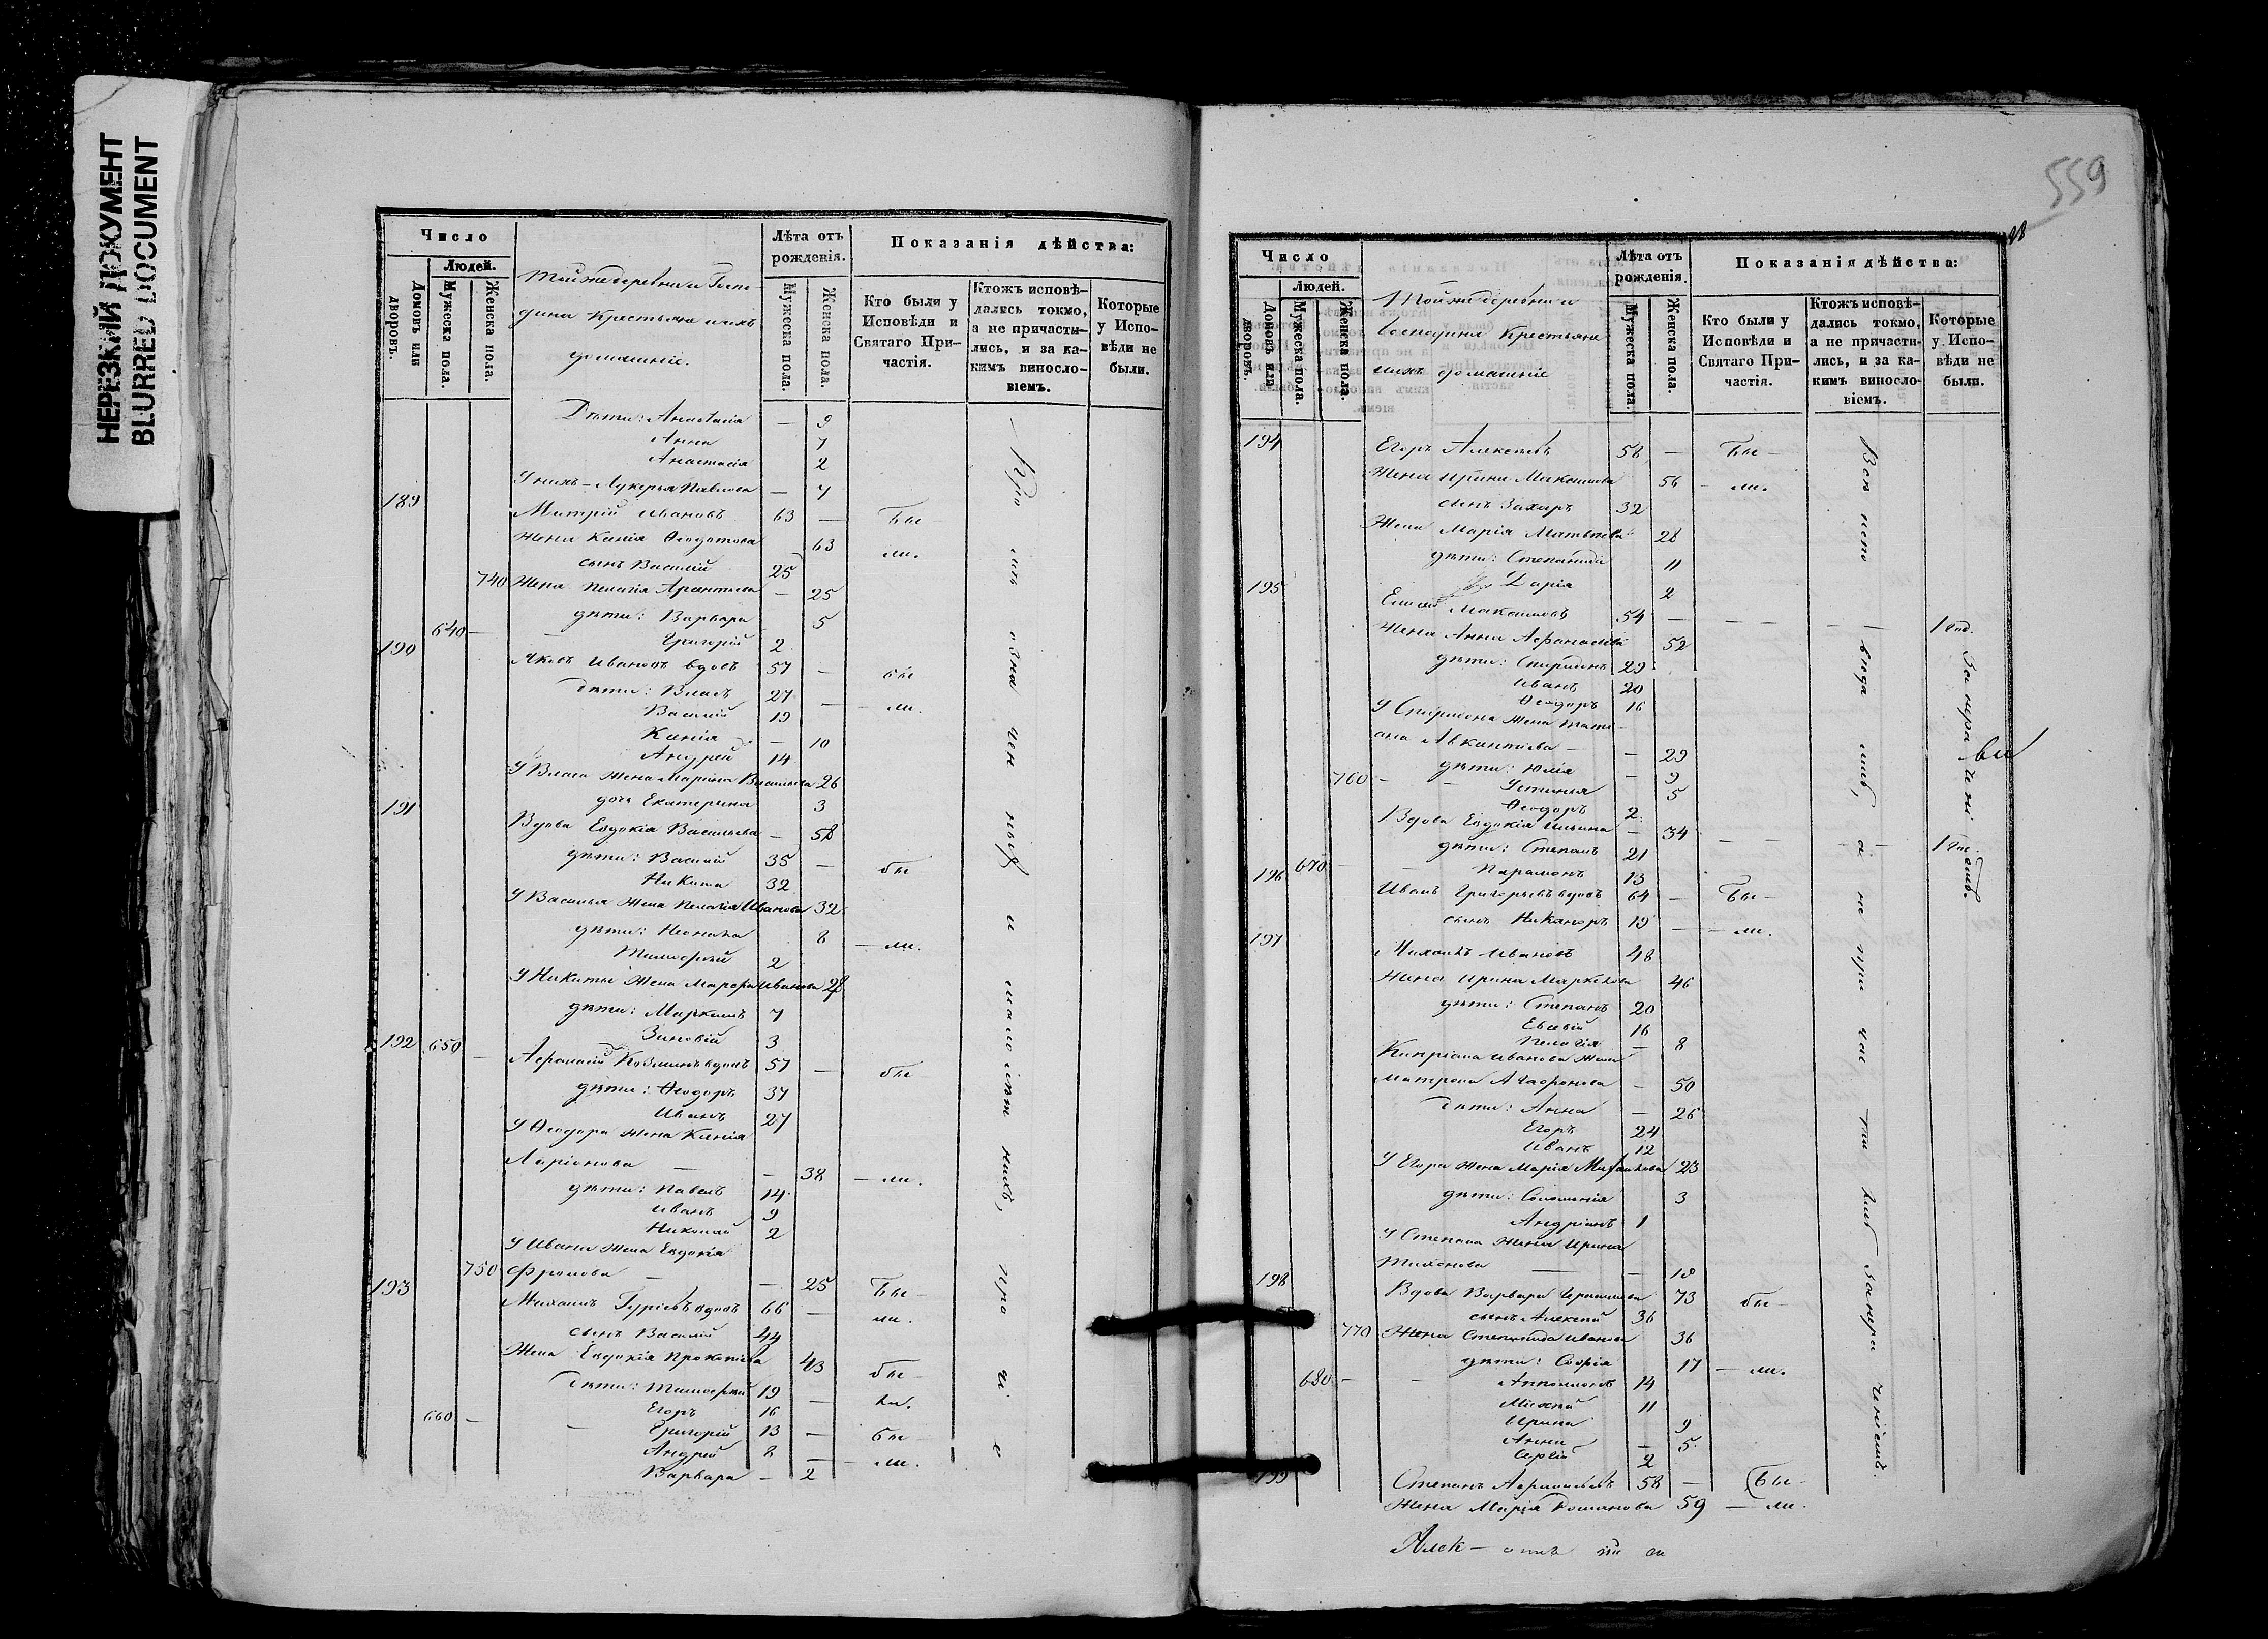 НЕРЕЗКИЙ ДОКУМЕНТ
BLURRED DOCUMENT
Число
Людей.
Домовъ или дворовъ.
Мужеска пола.
Женска пола.
Тойже деревни и Госпо-
дина Крестьяне и ихъ
домашніе.
Лѣта отъ рожденія.
Мужеска пола.
Женска пола.
Показанія дѣйства:
Кто были у Исповѣди и Святаго При-частія.
Ктожъ исповѣ-дались токмо, а не причасти-лись, и за ка-кимъ винносло-віемъ.
Которые у Испо-вѣди не были.
Дѣти: Анастасія — 9
Анна 7
Анастасія 2
У нихъ – Лукерья Павлова — 7
189 Митрій Ивановъ 63 — Бы-
Жена Ксенія Ѳеодотова 63 ли.
сынъ Василій 25
740 Жена Пелагія — 25
дѣти: Варвара 5
640 — Григорій 2
190 Яковъ Ивановъ вдовъ 57 — бы
Дѣти: Власъ 27
Василій 19 — ли.
Ксенія — 10
Андрей 14
У Власа Жена Марина 26
дочь Екатерина 3
191 Вдова Евдокія Васильева — 58
дѣти: Василій 35 — бы
Никита 32
У Василья Жена Пелагія Иванова 32
дѣти: 8 — ли.
Тимофей 2
У Никиты Жена Марфа Иванова 28
дѣти: 7
Зиновій 3
192 650 — Афанасій Козминъ вдовъ 57 — бы
дѣти: Ѳеодоръ 37
Иванъ 27
У Ѳеодора Жена Ксенія
Ларіонова — — 38 — ли.
дѣти: Павелъ 14
Иванъ 9
Николай 2
У Ивана Жена Евдокія
750 Фролова — — 25 Бы-
193 Михаилъ Гурьевъ вдовъ 66 — ли.
сынъ Василій 44
Жена Евдокія Прокопіева 43 бы-
Дѣти: Тимофей 19 — ли.
Егоръ 16
660 — Григорій 13 — бы
Андрей 8 — ли.
Варвара — 2
— Кро мѣ озна чен ныхъ и малолѣт нихъ, про чі е
559
Число
Людей.
Домовъ или дворовъ.
Мужеска пола.
Женска пола.
Тойже деревни и
Господина Крестьяне
и ихъ домашніе
Лѣта отъ рожденія.
Мужеска пола.
Женска пола.
Показанія дѣйства:
Кто были у Исповѣди и Святаго При-частія.
Ктожъ исповѣ-дались токмо, а не причасти-лись, и за ка-кимъ винносло-віемъ.
Которые у Испо-вѣди не были.
194 Егоръ Алексѣевъ 58 — Бы-
Жена Ирина 56 — ли.
сынъ Захаръ 32
Жена Марія Матвѣева 28
дѣти: Степанида 11
Дарія 2
195 Максимовъ 54 — — — 1 год.
Жена Анна Афанасіева 52
дѣти: Спиридонъ 29
Иванъ 20
Ѳеодоръ 16
У Спиридона Жена Тати-
ана — — 29
дѣти: Юлія — 9
760 — — Устинья 5
Ѳеодоръ 2
Вдова Евдокія Ильина — 34 1
дѣти: Степанъ 21
670 — — Парамонъ 13
196 Иванъ Григорьевъ вдовъ 64 — Бы-
сынъ Никаноръ 19 — — ли.
197 Михаилъ Ивановъ 48
Жена Ирина 46
дѣти: Степанъ 20
Евсевій 16
Пелагія — 8
Кипріана Иванова Жена
Матрона Агафонова — 50
Дѣти: Анна — 26
Егоръ 24
Иванъ 12
У Егора Жена Марія Михайлова 23
дѣти: Соломонія 3
Андріанъ 1
У Степана Жена Ирина
Тихонова — — 18
198 Вдова Варвара 73 бы-
сынъ Алексій 36
770 Жена Степанида Иванова 36
дѣти: Софія 17 — ли.
680 — — 14
11
Ирина 9
Анна — 5
Сергій 2
199 Степанъ 58 — Бы-
Жена Марія Романова 59 — ли.
Всѣ испо вѣда лись, а не при час ти лись за нера ченіемъ.
За нера чені емъ.